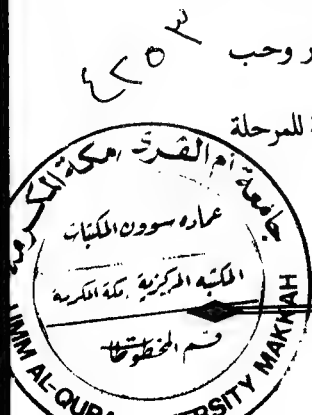 ر وحب
٤٢٥٣
للمرحلة
جامعة أم القرى مكة المكرمة
عمادة سوون المكتبات
المكتبه المركزية . مكة المكرمة
قسم المخطوطات
UMM AL-QURA UNIVERSITY MAKKAH